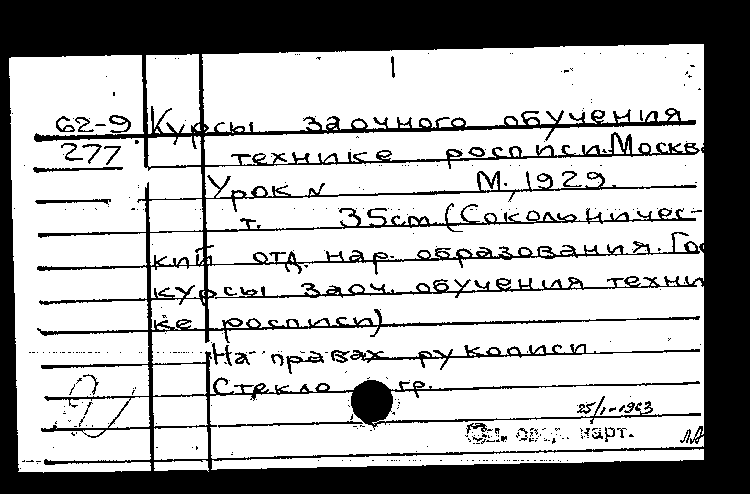 62-9 Курсы заочного обучения
277 технике росписи. Москва
Урок N М., 1929.
т. 35 см (Сокольничес-
кий отд. нар. образования. Гос
курсы заоч. обучения техни
ке росписи)
На правах рукописи.
Стекло гр.
25/I-1963
нарт.